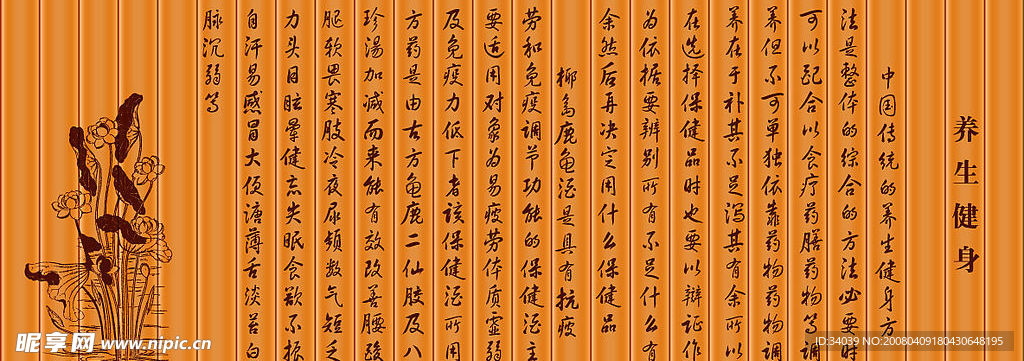 养生健身
中国传统的养生健身方
法是整体的综合的方法必要时
可以配合以食疗药膳药物等调
养但不可单独依靠药物药物调
养在于补其不足泻其有余所以
在选择保健品时也要以辩证作
为依据要辨别所有不足什么有
余然后再决定用什么保健品
柳岛鹿龟酒是具有抗疲
劳和免疫调节功能的保健酒主
要适用对象为易疲劳体质虚弱
及免疫力低下者该保健酒所用
方药是由古方龟鹿二仙胶及八
珍汤加减而来能有效改善腰酸
腿软畏寒肢冷夜尿频数气短乏
力头目眩晕健忘失眠食欲不振
自汗易感冒大便溏薄舌淡苔白
脉沉弱等
昵享网 www.nipic.cn
ID:34039 NO:20080409180430648195